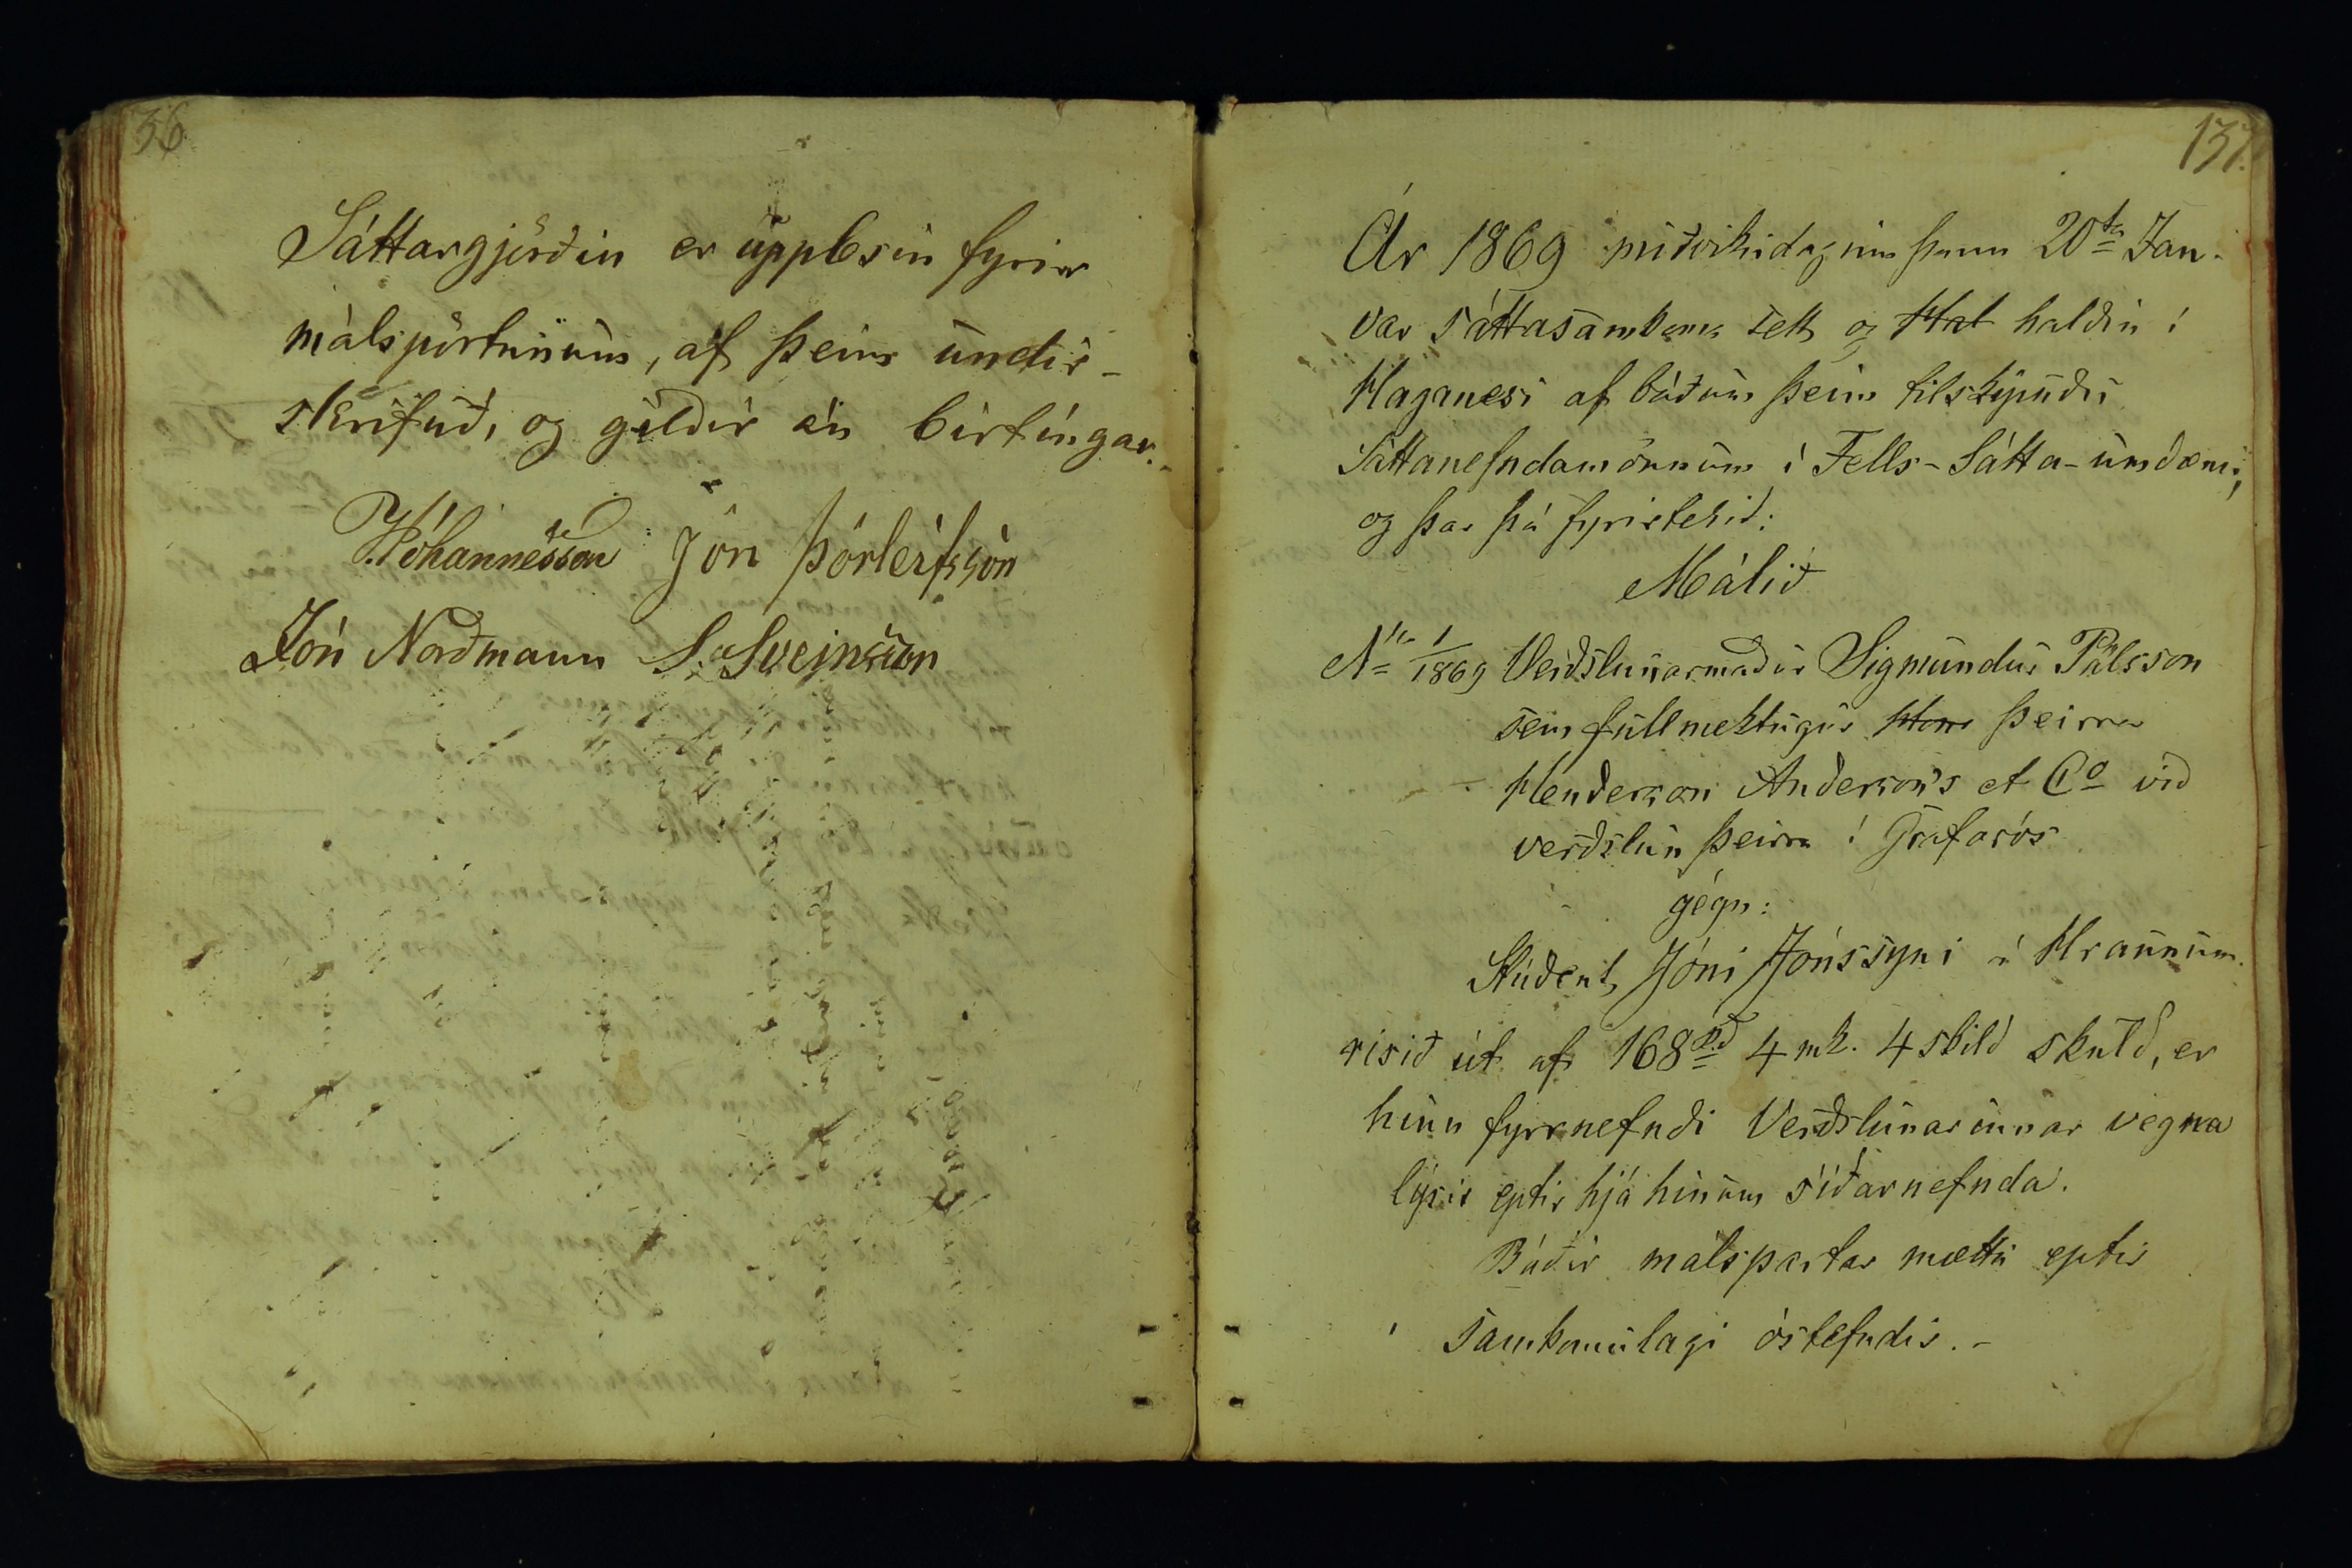 36
Sáttargjörðin er upplesin fyrir
málspörtunum, af þeim undir-
skrifuð, og gildir án birtíngar.
Jóhannesson Jón Þórleifsson
Jón Norðmann S. Sveinsson
137.
Ár 1869 miðvikudaginn þann 20ta Jan.
var sáttasamkoma sett og Hal haldin í
Haganesi af báðum þeim tilskipuðu
Sáttanefndamönnum í Fells-Sátta-umdæmi,
og þar þá fyrirtekið:
Málið
No 1/1869 Verðslunarmaður Sigmundur Pálsson
sem fullmektugur þeirra
Henderson Anderson's et Co við
verðslun þeirra í Grafarós
gégn:
Stúdent Jóni Jónssyni á Hraunum.
risið út af 168rd 4 mk. 4 skild skuld, er
hinn fyrrnefndi Verðslunarinnar vegna
lýsir eptir hjá hinum síðarnefnda.
Báðir málspartar mættu eptir
samkomulagi óstefndir.-